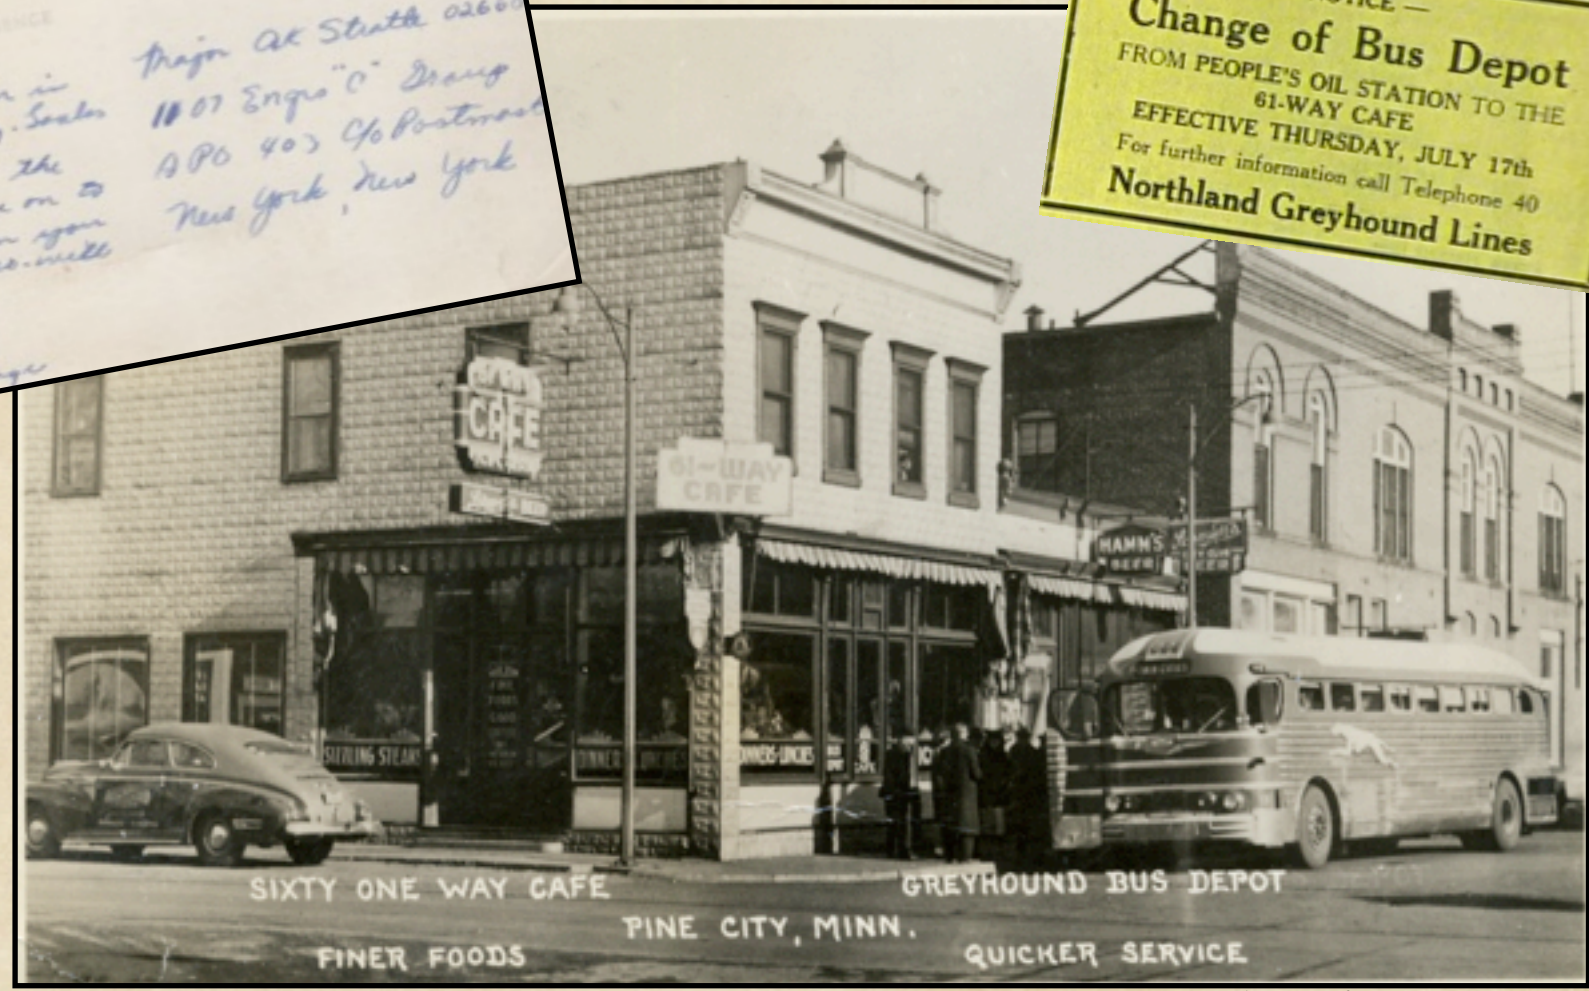 Major OK Stratte 02660
1107 Engrs "C" Group
APO 403 c/o Postmast
New York, New York
the
on to
NOTICE —
Change of Bus Depot
FROM PEOPLE'S OIL STATION TO THE
61-WAY CAFE
EFFECTIVE THURSDAY, JULY 17th
For further information call Telephone 40
Northland Greyhound Lines
CAFE
61-WAY
CAFE
HAMM'S
BEER
SIZZLING STEAKS
DINNERS-LUNCHES
DINNERS-LUNCHES
SIXTY ONE WAY CAFE
GREYHOUND BUS DEPOT
PINE CITY, MINN.
FINER FOODS
QUICKER SERVICE